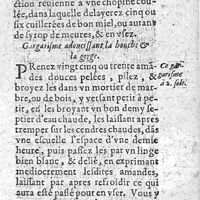 ction reuienne à vne chopine cou-
lée, dans laquelle delayerez cinq ou
six cuillerées de bon miel, ou autant
de syrop de meures, & en vsez.
Gargarisme adoucissant la bouche &
la gorge.
PRenez vingt cinq ou trente amã-
des douces pelées, pilez, &
broyez les dans vn mortier de mar-
bre, ou de bois, y versant petit à pe-
tit, en les broyant vn bon demy se-
ptier d'eau chaude, les laissant apres
tremper sur les cendres chaudes, dãs
vne escuelle l'espace d'vne demie
heure, puis passez les par vn linge
bien blanc, & delié, en exprimant
mediocrement lesdites amandes,
laissant par apres refroidir ce qui
aura esté passé pour en vser. Vous y
Ce gar-
garisme
à 2. sols.